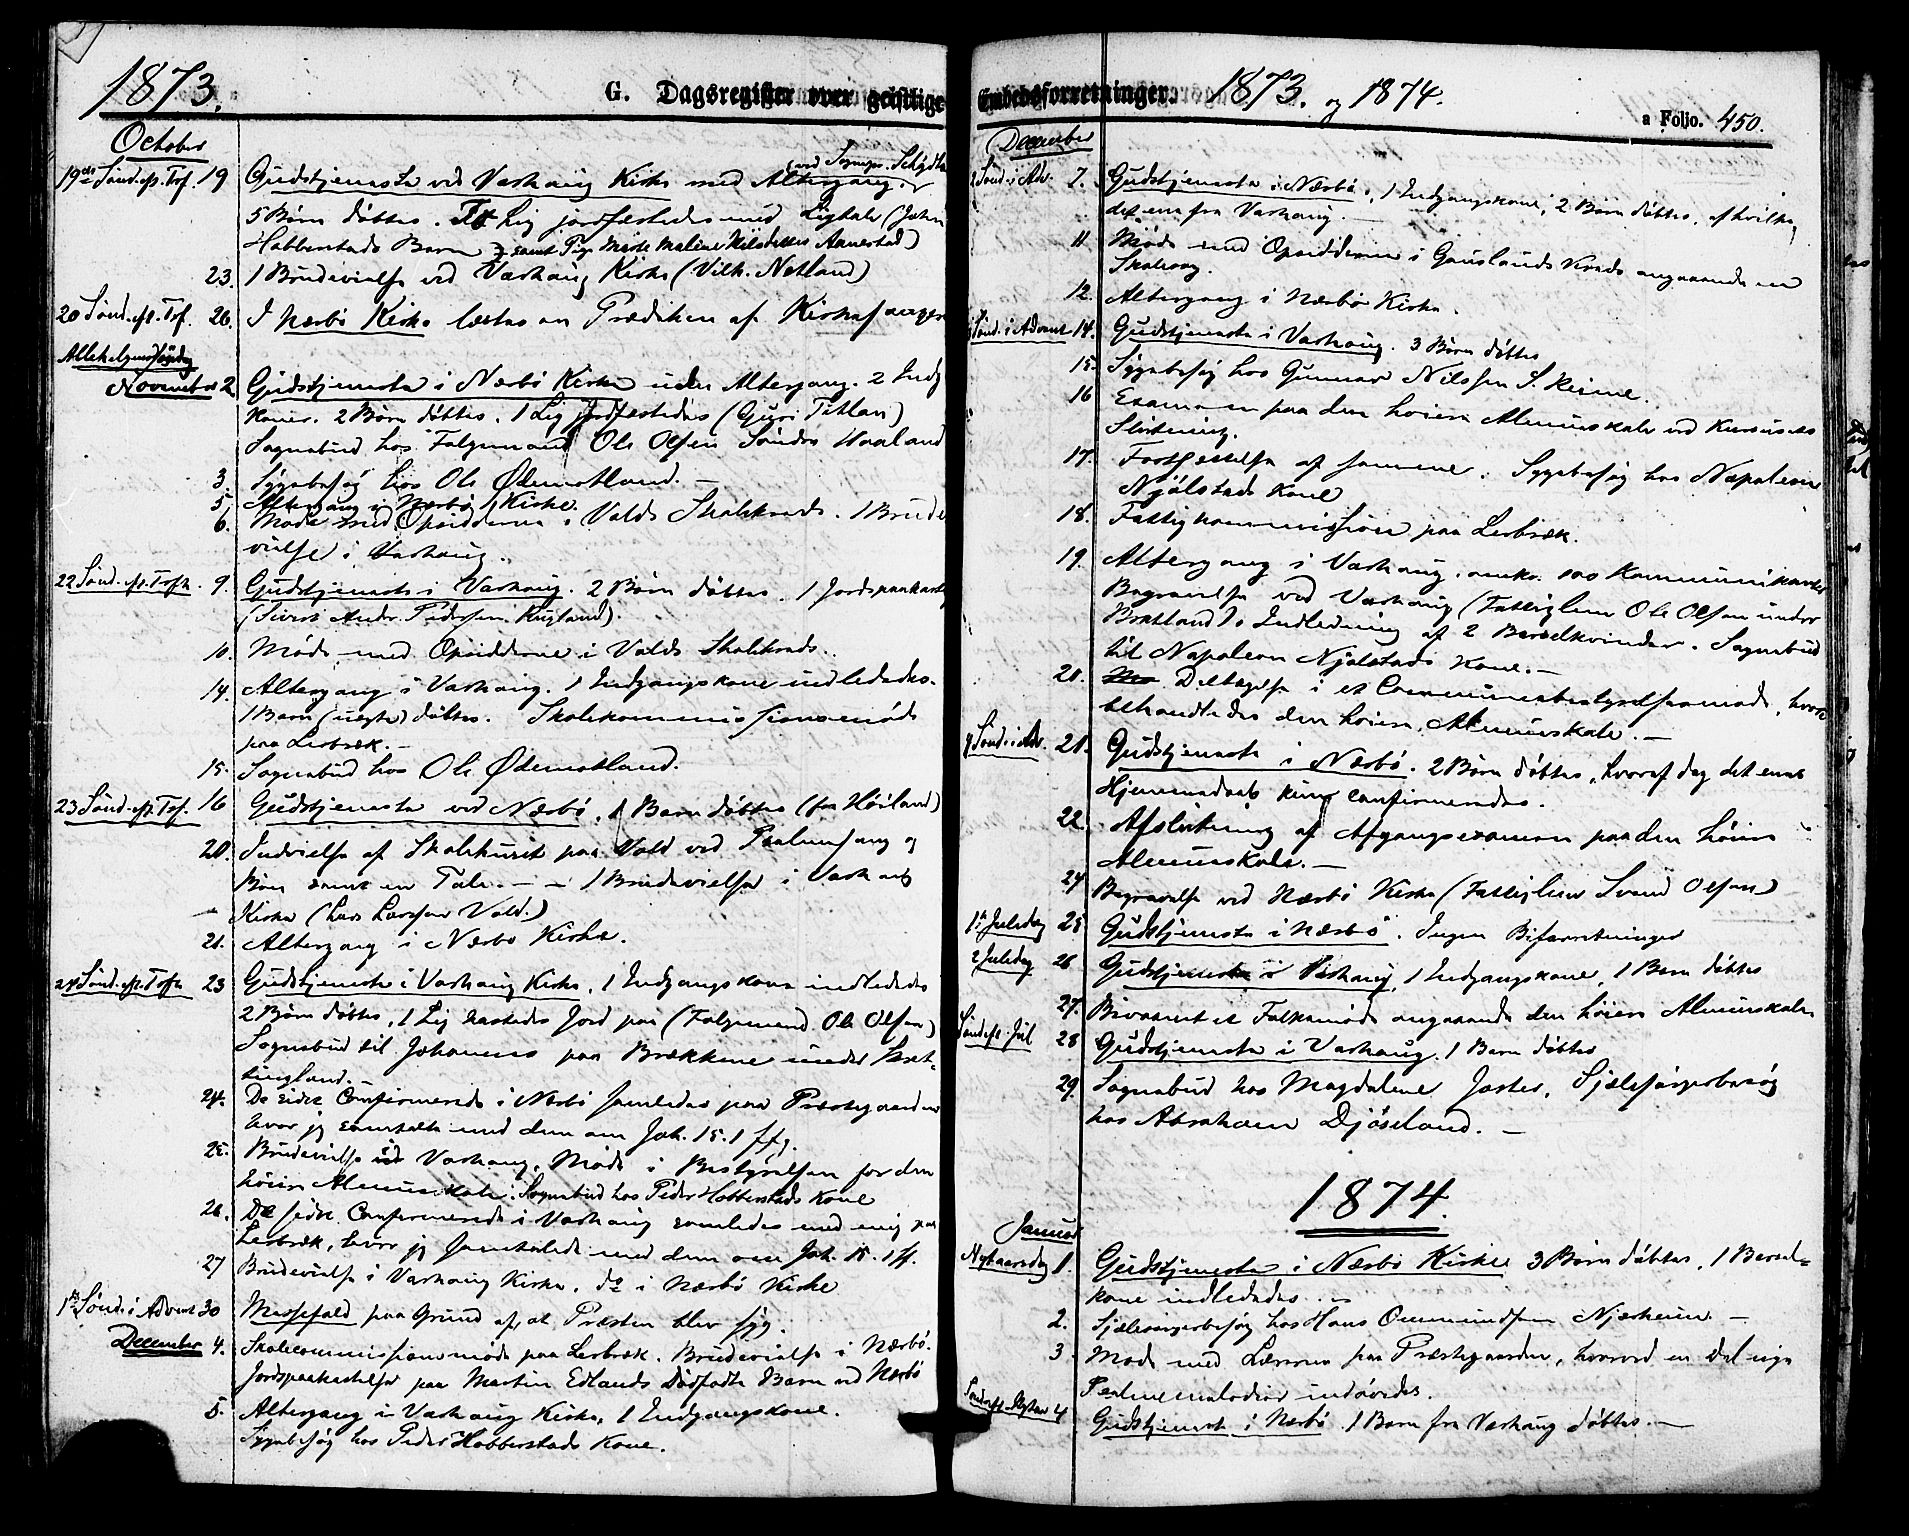 1873.
G. Dagsregister over geistlige
October
(ved Sognepr. Schiødte
19de Sønd. ef. Tref. 19 Gudstjeneste ved Varhaug Kirke med Altergang.
5 Børn døbtes. To Lig jordfæstedes med Ligtale (John
Hobberstads Barn samt Pige Marte Maline Nilsdatter Aanestad)
23. 1 Brudevielse ved Varhaug Kirke (Vilh. Netland)
20 Sønd. ef. Tref. 26. I Nærbø Kirke læstes en Prædiken af Kirkesangeren
Allehelgenssøndag
November 2 Gudstjeneste i Nærbø Kirke uden Altergang. 2 Indg
koner. 2 Børn døbtes. 1 Lig jordfæstedes (Guri Titlan)
Sognebud hos Følgemand Ole Olsen Søndre Haaland
3. Sygebesøg hos Ole Ødemotland. —
5. Altergang i Nærbø Kirke.
6. Møde med Opsidderne i Valds Skolekreds. 1 Brude
vielse i Varhaug.
22 Sønd. ef. Trefh. 9. Gudstjeneste i Varhaug. 2 Børn døbtes. 1 Jordspaakastelse
(Sivert Andr. Pedersen Rugland).
10. Møde med Opsidderne i Valds Skolekreds.
14. Altergang i Varhaug. 1 Indgangskone indledades.
1 Barn (uægte) døbtes. Skolekommissionsmøde
paa Lerbræk. —
15. Sognebud hos Ole Ødemotland.
23 Sønd. ef. Tref. 16 Gudstjeneste ved Nærbø, 1 Barn døbtes (fra Høiland)
20. Indvielse af Skolehuset paa Vold ved Psalmesang og
Bøn samt en Tale. — — 1 Brudevielse i Varhaug
Kirke (Lars Larsen Vold.)
21. Altergang i Nærbø Kirke.
24 Sønd. ef. Trefh 23 Gudstjeneste i Varhaug Kirke, 1 Indgangskone indledades
2 Børn døbtes, 1 Lig kastedes Jord paa (Følgemand Ole Olsen)
Sognebud til Johannes paa Brækkene under Skret-
tingland.
24. De sidst Confirmerede i Nærbø samledes paa Præstegaarden
hvor jeg samtalte med dem om Joh. 15. 1 ffg.
25. Brudevielse ved Varhaug, Møde i Bestyrelsen for den
høiere Almueskole. Sognebud hos Peder Hobberstads Kone
26. De sidst Confirmerede i Varhaug samledes med mig paa
Lerbræk, hvor jeg samtalede med dem om Joh. 15. 1 ff.
27 Brudevielse i Varhaug Kirke, do i Nærbø Kirke
1ste Sønd. i Advent 30 Messefald paa Grund af, at Præsten blev syg.
December 4. Skolecommissionsmøde paa Lerbræk. Brudevielse i Nærbø.
Jordspaakastelse paa Martin Edlands Dødfødte Barn ved Nærbø
5. Altergang i Varhaug Kirke, 1 Indgangskone.
Sygebesøg hos Peder Hobberstads Kone.
Embedsforretninger. 1873. og 1874.
a Folio. 450.
December
2 Sønd. i Adv. 7. Gudstjeneste i Nærbø, 1 Indgangskone, 2 Børn døbtes, af hvilke
det ene fra Varhaug. —
11. Møde med Opsidderne i Gauslands Kreds angaaende en
Skolesag.
12. Altergang i Nærbø Kirke.
Sønd. i Advent 14. Gudstjeneste i Varhaug. 3 Børn døbtes
15. Sygebesøg hos Gunnar Nilssen S. Reime.
16 Examen paa den høiere Almueskole ved Kursusets
Slutning.
17. Fortsættelse af samme. Sygebesøg hos Napoleon
Njølstads Kone
18. Fattigkommission paa Lerbræk.
19. Altergang i Varhaug. omkr. 100 Kommunikanter
Begravelse ved Varhaug (Fattiglem Ole Olsen under
Bratland). Indledning af 2 Barselkvinder. Sognebud
til Napoleon Njølstads Kone. —
20. Deltagelse i et Communebestyrelsesmøde, hvor
behandledes den høiere Almueskole. —
4 Sønd. i Adv. 21. Gudstjeneste i Nærbø. 2 Børn døbtes, hvoraf dog det enes
Hjemmedaab kun confirmeredes.
22. Afslutning af Afgangsexamen paa den høiere
Almueskole. —
24 Begravelse ved Nærbø Kirke (Fattiglem Svend Olsen)
1ste Juledag 25 Gudstjeneste i Nærbø. Ingen Biforretninger
2 Juledag 26 Gudstjeneste i Varhaug, 1 Indgangskone, 1 Barn døbtes
27. Bivaanet et Folkemøde angaaende den høiere Almueskole.
Sønd. ef. Jul 28 Gudstjeneste i Varhaug. 1 Barn døbtes
29. Sognebud hos Magdalene Joster, Sjælesørgerbesøg
hos Abraham Djøseland. —
1874.
Januar
Nytaarsdag 1. Gudstjeneste i Nærbø Kirke 3 Børn døbtes, 1 Barsel-
kone indledades. —
2. Sjælesørgerbesøg hos Hans Ommundsen Njærheim. —
3. Møde med Lærerne paa Præstegaarden, hvorved en Del nye
Psalmemelodier indøvedes.
Sønd. ef. Nytaar 4 Gudstjeneste i Nærbø. 1 Barn fra Varhaug døbtes. —